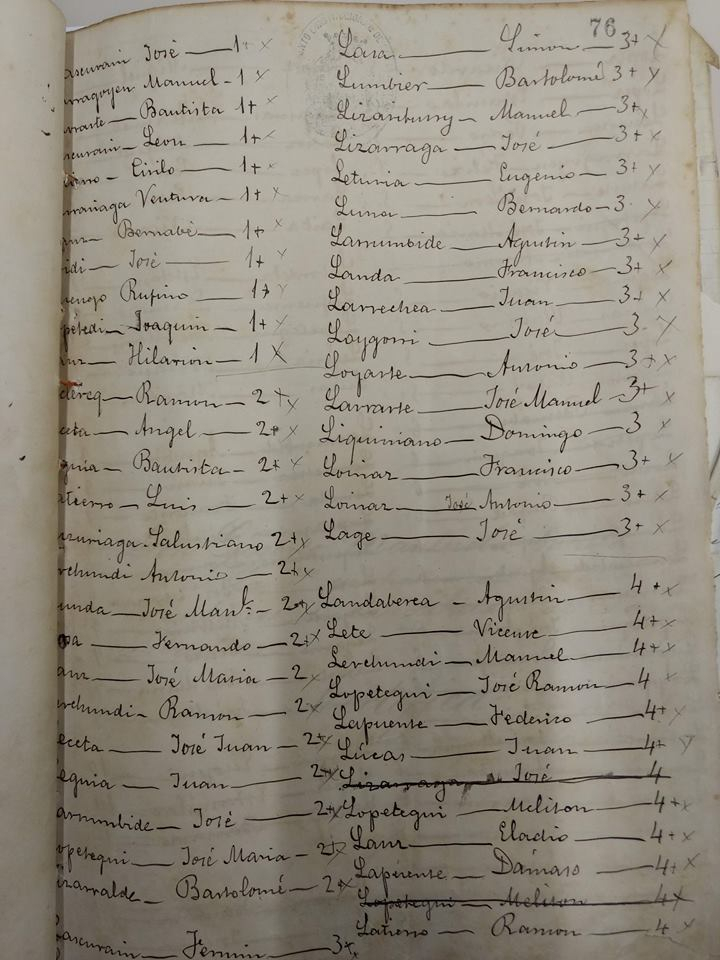 76
ascurain José — 1+ x
rragoyen Manuel - 1 x
rrarte — Bautista 1+ x
scurain — Leon — 1+ x
Cirilo — 1+ x
rrariaga Ventura — 1+ x
aur — Bernabé — 1+ x
idi — José — 1+ x
Rufino — 1+ x
petedi — Joaquin — 1+ x
aur — Hilarion — 1 x
clercq — Ramon — 2 + x
ceta — Angel — 2+ x
guia — Bautista — 2+ x
atierro — Luis — 2+ x
zuriaga - Salustiano 2+ x
rchundi Antonio — 2+ x
unda — José Manl. — 2+ x
pa — Fernando — 2+ x
aur — José Maria — 2 x
rchundi — Ramon — 2 x
eceta — José Juan — 2+ x
equia — Juan — 2+ x
arrumbide — José — 2+ x
opetegui — José Maria — 2+ x
izarralde — Bartolomé — 2+ x
ascurain — Fermin — 3+
Lasa — Simon — 3+ x
Lumbier — Bartolomé 3+ x
Lizantuny — Manuel — 3+ x
Lizarraga — José — 3+ x
Leturia — Eugenio — 3+ x
Luna — Bernardo — 3 x
Larrumbide — Agustin — 3+ x
Landa — Francisco — 3+ x
Larrechea — Juan — 3+ x
Loygorri — José — 3 x
Loyarte — Antonio — 3+ x
Larrarte — José Manuel — 3+
Liquiniano — Domingo — 3 x
Loinaz — Francisco — 3+ x
Loinaz José Antonio — 3+ x
Lage — José — 3+ x
Landaberea — Agustin — 4 + x
Lete — Vicente — 4+ x
Lerchundi — Manuel — 4+ x
Lopetegui — José Ramon — 4 x
Lapuente — Federico — 4+ x
Lúcas — Juan — 4+ x
Lizarraga José 4
Lopetegui — Meliton — 4+ x
Laur — Eladio — 4+ x
Lapuente — Dámaso — 4+ x
Lopetegui — Meliton — 4 x
Latierro — Ramon — 4 x